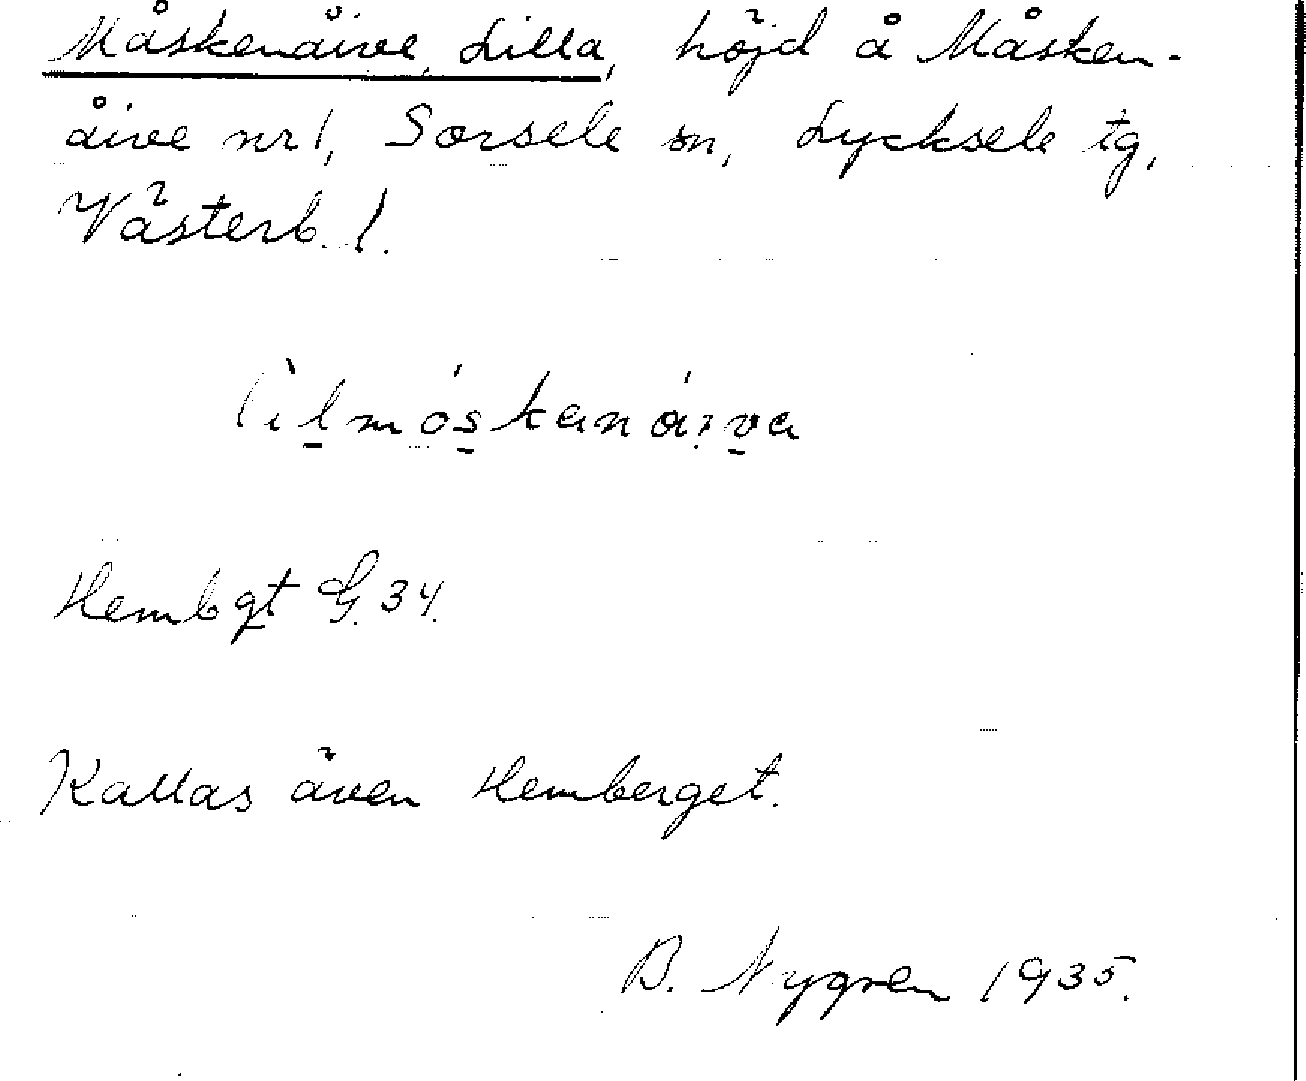 Måskenåive, Lilla, höjd å Måsken-
åive nr 1, Sorsele sn, Lycksele tg,
Västerb. l.
Hembgt G. 34.
Kallas även Hemberget.
B. Nygren 1935.